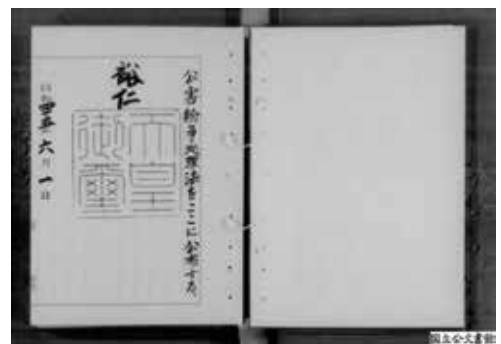 公害紛争処理法をここに公布する。
裕仁
天皇
御璽
昭和四十五年六月一日
国立公文書館